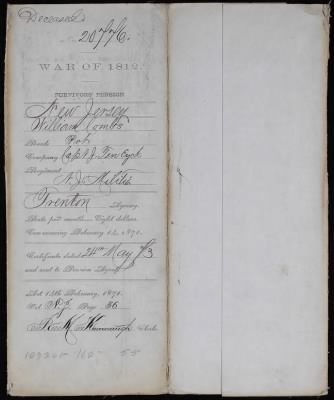 Deceased
20776.
WAR OF 1812.
SURVIVORS' PENSION
New Jersey
William Combs
Rank Pvt
Company Capt J. Ten Eyck
Regiment
N. J. Militia
Trenton Agency
Rate per month, Eight dollars
Commencing February 14, 1871.
Certificate dated 24th May 73
and sent to Pension Agent
Act 14th February, 1871.
Vol. N.J. Page 36
Clerk